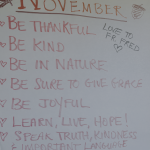 NOVEMBER
BE THANKFUL
BE KIND
BE IN NATURE
BE SURE TO GIVE GRACE
BE JOYFUL
LEARN, LIVE, HOPE!
SPEAK TRUTH, KINDNESS
& IMPORTANT LANGUAGE
LOVE TO